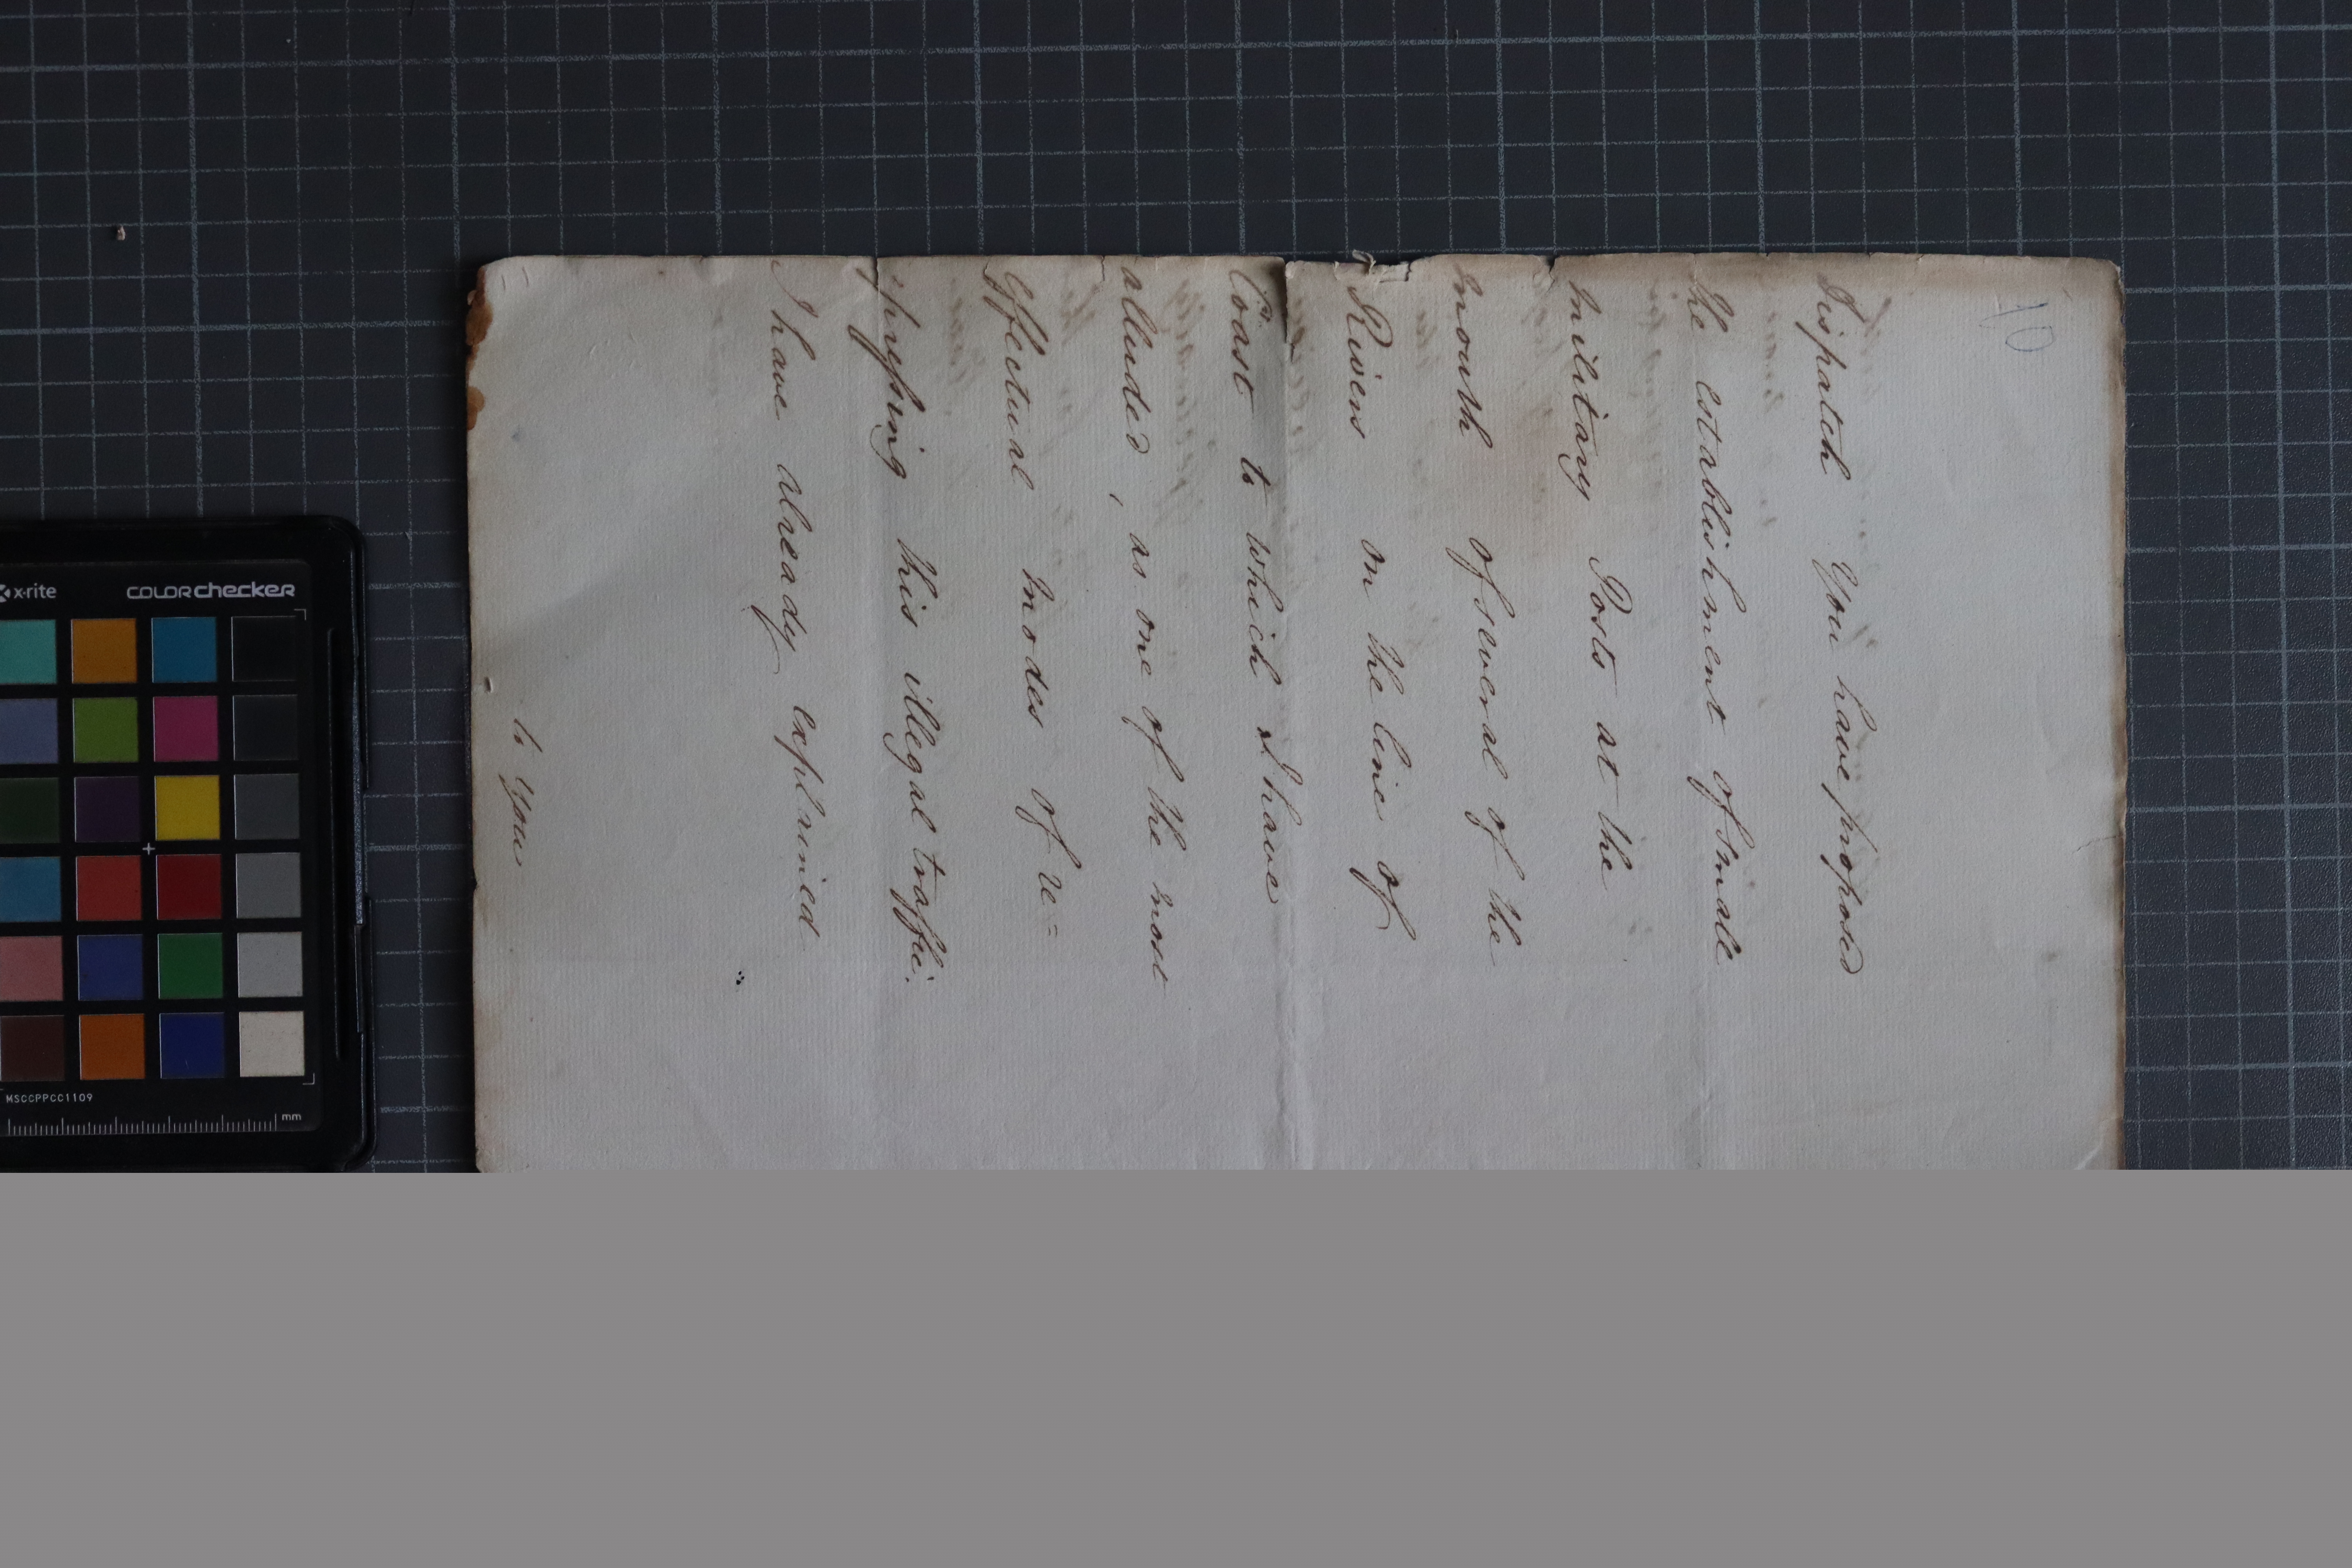 10
Dispatch You have proposed
the establishment of small
Military Posts at the
mouth of several of the
Rivers on the line of
Coast to which I have
alluded, as one of the most
effectual modes of re=
=pressing this illegal traffic.
I have already explained
to You
x-rite
colorchecker
MSCCPPCC1109
mm